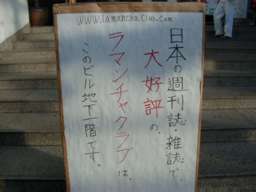 www.lamancha.club.com
日本の週刊誌・雑誌で
大好評の、
ラマンチャクラブは、
このビル地下一階です。